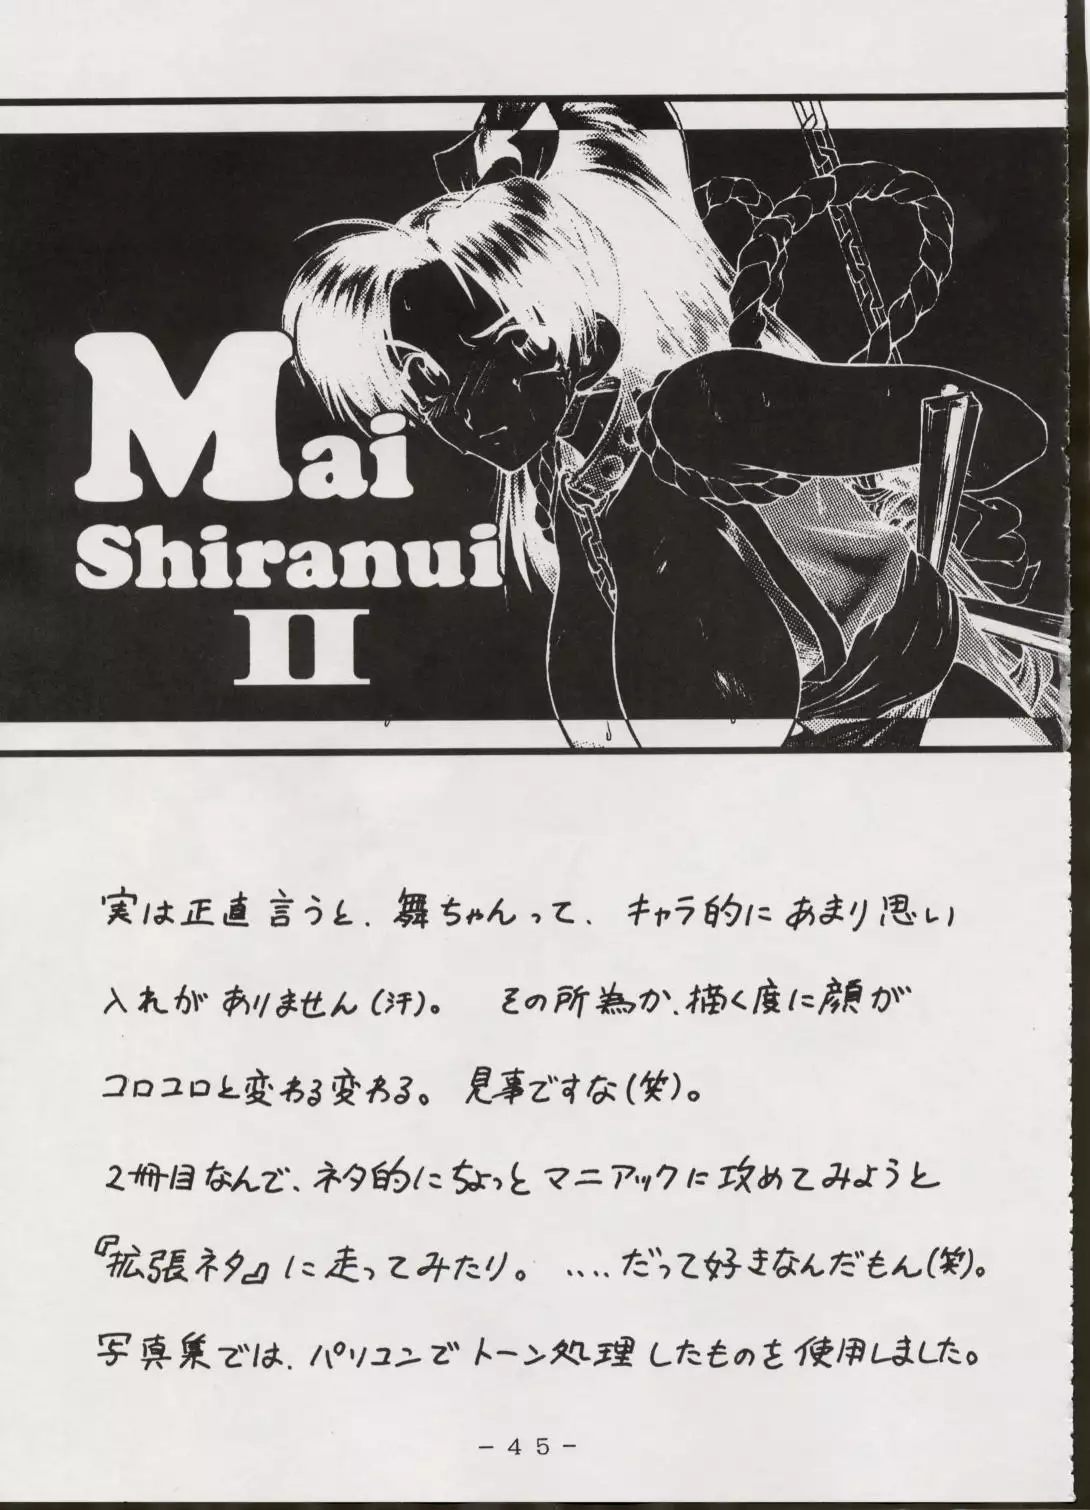 Mai
Shiranui
II
実は正直言うと、舞ちゃんって、キャラ的にあまり思い
入れがありません(汗)。 その所為か、描く度に顔が
コロコロと変わる変わる。 見事ですな(笑)。
2冊目なんで、ネタ的にちょっとマニアックに攻めてみようと
『拡張ネタ』に走ってみたり。 ‥‥だって好きなんだもん(笑)。
写真集では、パソコンでトーン処理したものを使用しました。
- 4 5 -